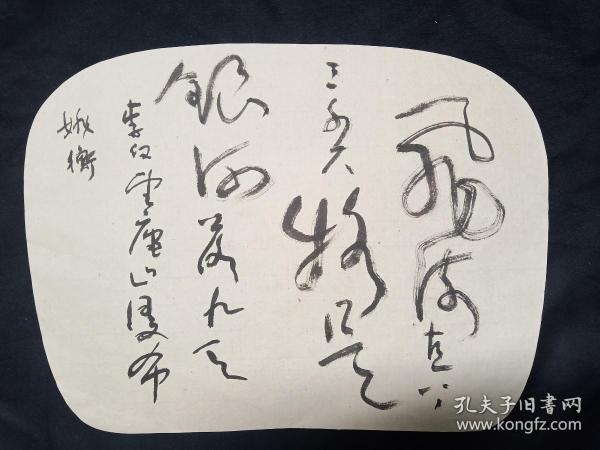 飛流直下
三千尺 疑是
銀河落九天
李白望廬山瀑布
孔夫子旧書网
www.kongfz.com